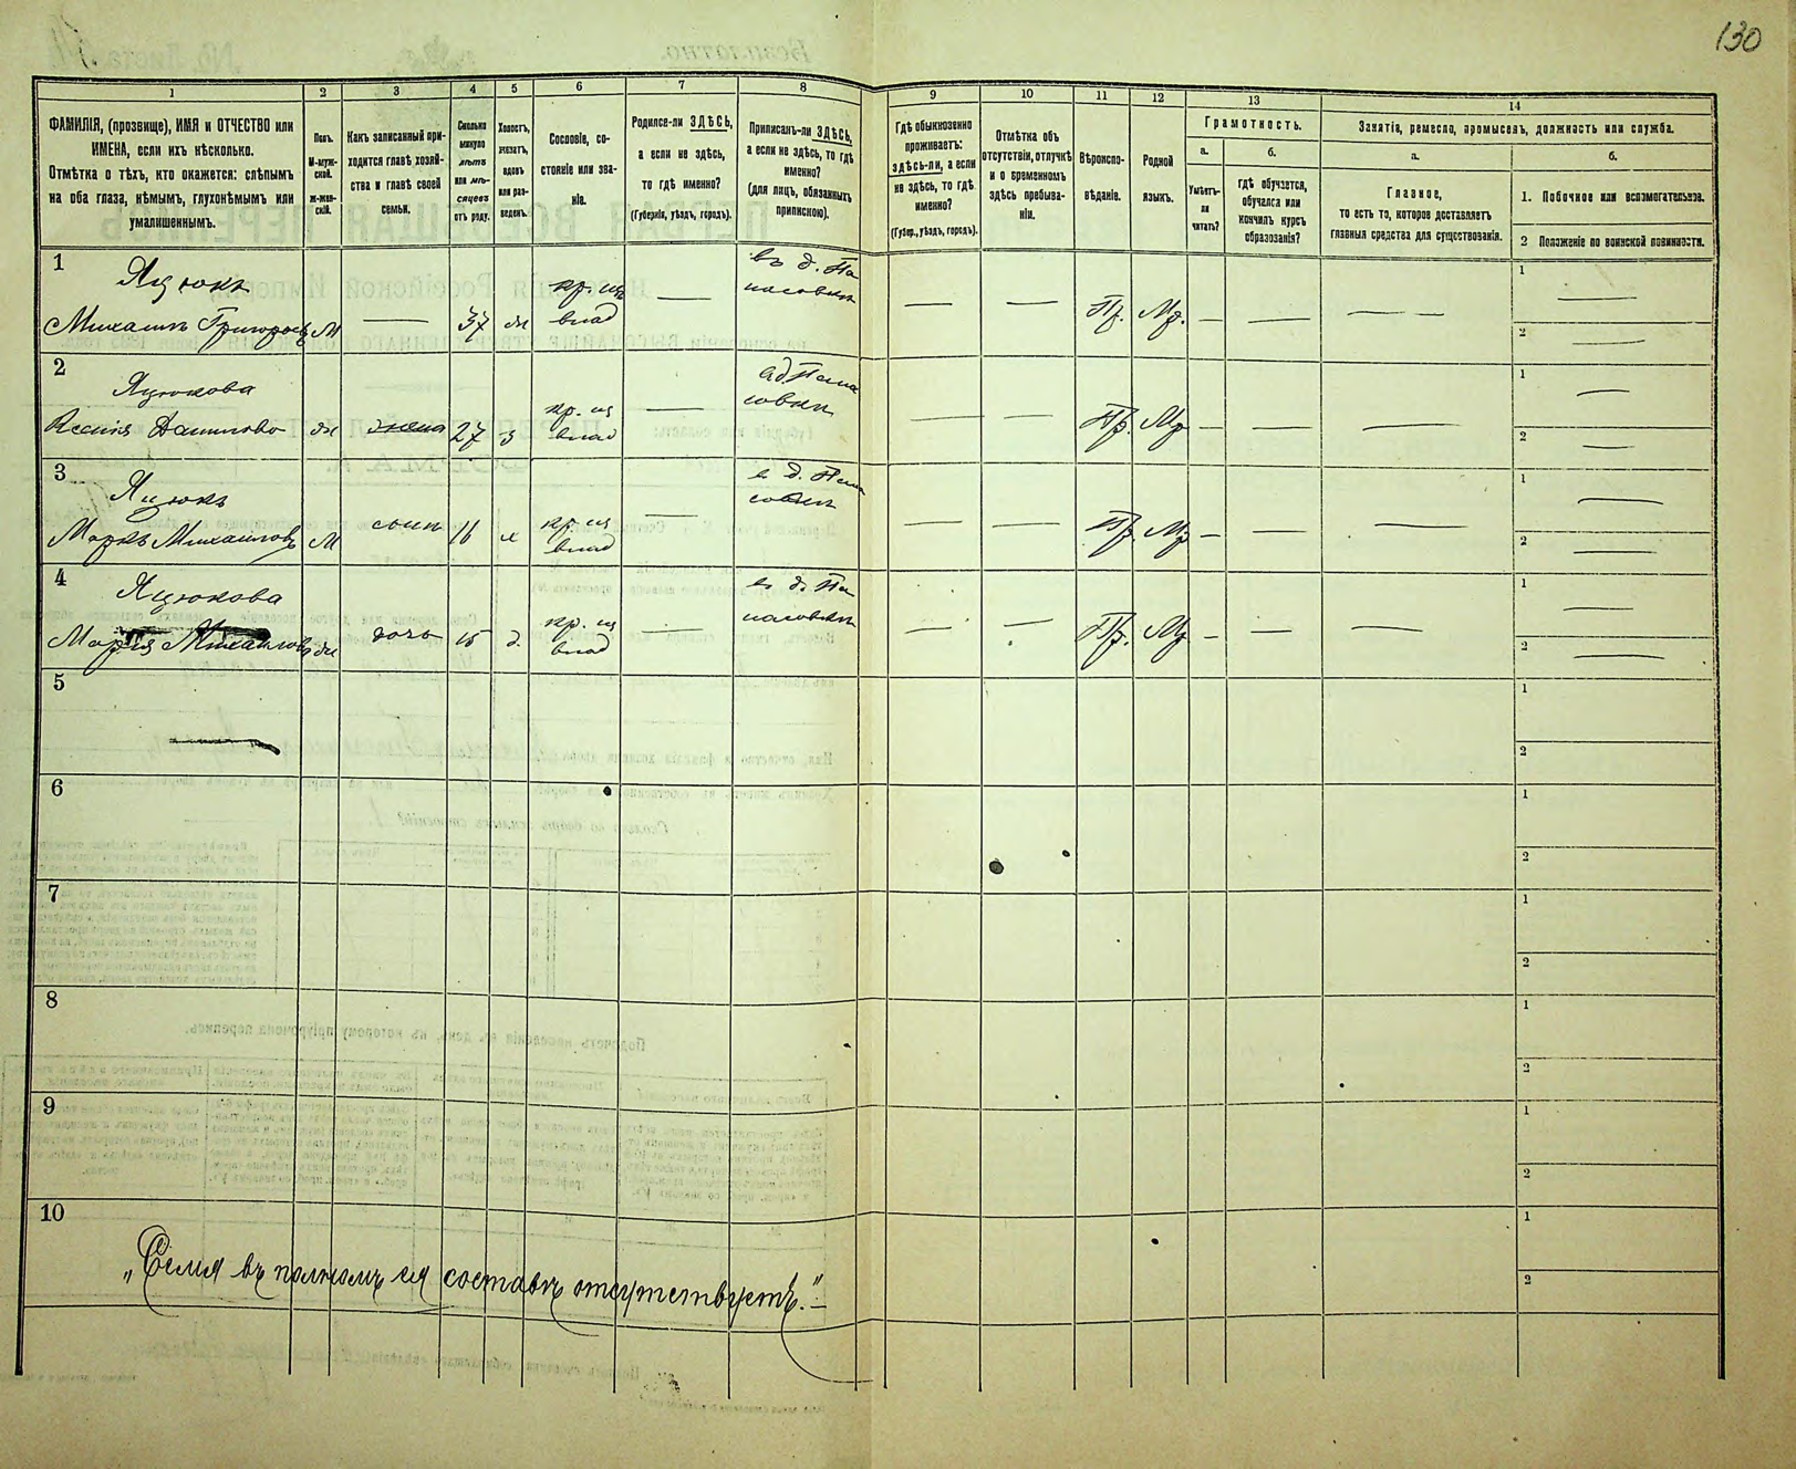 130
1
2
3
4
5
6
7
8
9
10
11
12
13
14
ФАМИЛІЯ, (прозвище), ИМЯ и ОТЧЕСТВО или
ИМЕНА, если ихъ нѣсколько.
Отмѣтка о тѣхъ, кто окажется: слѣпымъ
на оба глаза, нѣмымъ, глухонѣмымъ или
умалишеннымъ.
Полъ.
М-муж-
ской.
ж-жен-
скій.
Какъ записанный при-
ходится главѣ хозяй-
ства и главѣ своей
семьи.
Сколько
минуло
лѣтъ
или мѣ-
сяцевъ
отъ роду.
Холостъ,
женатъ,
вдовъ
или раз-
веденъ.
Сословіе, со-
стояніе или зва-
ніе.
Родился-ли ЗДѢСЬ,
а если не здѣсь,
то гдѣ именно?
(Губернія, уѣздъ, городъ).
Приписанъ-ли ЗДѢСЬ,
а если не здѣсь, то гдѣ
именно?
(для лицъ, обязанныхъ
припискою).
Гдѣ обыкновенно
проживаетъ:
здѣсь-ли, а если
не здѣсь, то гдѣ
именно?
(Губер., уѣздъ, городъ).
Отмѣтка объ
отсутствіи, отлучкѣ
и о временномъ
здѣсь пребыва-
ніи.
Вѣроиспо-
вѣданіе.
Родной
языкъ.
Грамотность.
а.
Умѣетъ-
ли
читать?
б.
гдѣ обучается,
обучался или
кончилъ курсъ
образованія?
Занятіе, ремесло, промыселъ, должность или служба.
а.
Главное,
то есть то, которое доставляетъ
главныя средства для существованія.
б.
1. Побочное или вспомогательное.
2 Положеніе по воинской повинности.
1
Яцюкъ
Михаилъ Григорьевъ М — 37 ж кр. изъ
влад — въ д. Па
насовки — — Пр. Мр. — — — —
1 —
2 —
2
Яцюкова
Ксенія Данилова ж жена 27 з кр. из
влад — в д. Пана
совки — — Пр. Мр — — —
1 —
2 —
3
Яцюкъ
Маркъ Михаиловъ М сынъ 16 х кр. из
влад — в д. Пана
совки — — Пр. Мр — — —
1 —
2 —
4
Яцюкова
Марія Михаилова ж дочь 15 д. кр. из
влад — въ д. Па
насовки — — Пр. Мр — — —
1 —
2 —
5
1
2
6
1
2
7
1
2
8
1
2
9
1
2
10
1
2
„Семья въ полномъ ея составѣ отсутствуетъ."—